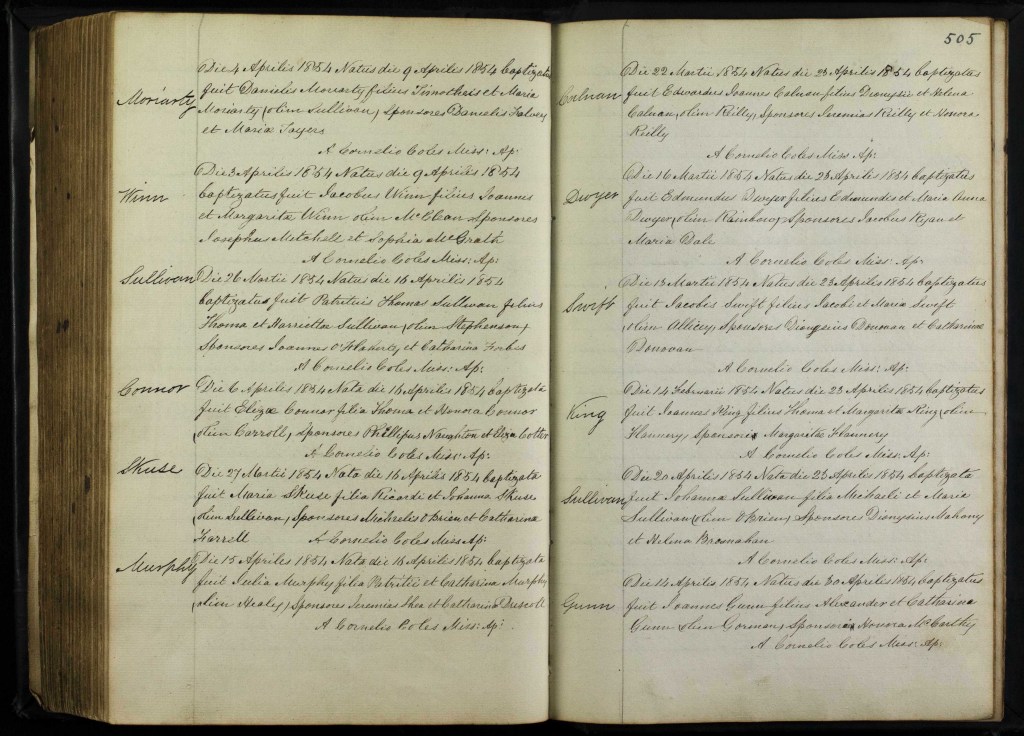 Die 4 Aprilis 1854 Natus die 9 Aprilis 1854 baptizatus
Moriarty fuit Danielis Moriarty filius Timotheis et Maria
Moriarty (olim Sullivan) Sponsores Danielis Falvey
et Maria Sayers
A Cornelio Coles Miss: Ap:
Die 3 Aprilis 1854 Natus die 9 Aprilis 1854
Winn baptizatus fuit Jacobus Winn filius Joannes
et Margarita Winn olim Sponsores
Josephus Mitchell et Sophia McGrath
A Cornelio Coles Miss: Ap:
Sullivan Die 26 Martii 1854 Natus die 16 Aprilis 1854
baptizatus fuit Patritius Thomas Sullivan filius
Thoma et Harrietta Sullivan (olim Stephenson)
Sponsores Joannes O'Flaherty, et Catharina Forbes
A Cornelio Coles Miss: Ap:
Connor Die 6 Aprilis 1854 Nata die 16 Aprilis 1854 baptizata
fuit Eliza Connor filia Thoma et Honora Connor
(olim Carroll) Sponsores Phillipus Naughton et Eliza Cotter
A Cornelio Coles Miss: Ap:
Skuse Die 27 Martii 1854 Nata die 16 Aprilis 1854 baptizata
fuit Maria Skuse filia Ricardi et Johanna Skuse
(olim Sullivan) Sponsores Michaelis O'Brien et Catharina
Farrell A Cornelio Coles Miss: Ap:
Murphy Die 15 Aprilis 1854 Nata die 16 Aprilis 1854 baptizata
fuit Julia Murphy filia Patritii et Catharina Murphy
(olim Healey) Sponsores Jeremias Shea et Catharina Driscoll
A Cornelio Coles Miss: Ap:
505
Die 22 Martii 1854 Natus die 23 Aprilis 1854 baptizatus
Calnan fuit Edwardus Joannes Calnan filius Dionysii et Helena
Calnan, olim Reilly, Sponsores Jeremias Reilly et Honora
Reilly
A Cornelio Coles Miss: Ap:
Die 16 Martii 1854 Natus die 23 Aprilis 1854 baptizatus
Dwyer fuit Edmundus Dwyer filius Edmundus et Maria Anna
Dwyer (olim Rainbow) Sponsores Jacobus Ryan et
Maria Dale
A Cornelio Coles Miss: Ap:
Die 13 Martii 1854 Natus die 23 Aprilis 1854 baptizatus
Swift fuit Jacobis Swift filius Jacobi et Maria Swift
Sponsores Dionysius Donovan et Catharina
Donovan
A Cornelio Coles Miss: Ap:
Die 14 Februarii 1854 Natus die 23 Aprilis 1854 baptizatus
King fuit Joannes King filius Thoma et Margarita King (olim
Flannery) Sponsores Margarita Flannery
A Cornelio Coles Miss: Ap:
Die 20 Aprilis 1854 Nata die 23 Aprilis 1854 baptizata
Sullivan fuit Johanna Sullivan filia Michaeli et Maria
Sullivan (olim O'Brien) Sponsores Dionysius Mahony
et Helena Brosnahan
A Cornelio Coles Miss: Ap:
Die 14 Aprilis 1854 Natus die 30 Aprilis 1854 baptizatus
Gunn fuit Joannes Gunn filius Alexander et Catharina
Gunn (olim Gorman) Sponsores Honora McCarthy
A Cornelio Coles Miss: Ap: